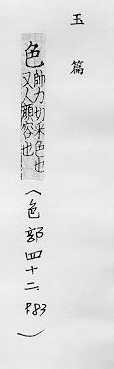 玉篇
色師力切采色也
又人顏容也
(色部四十二 P83)